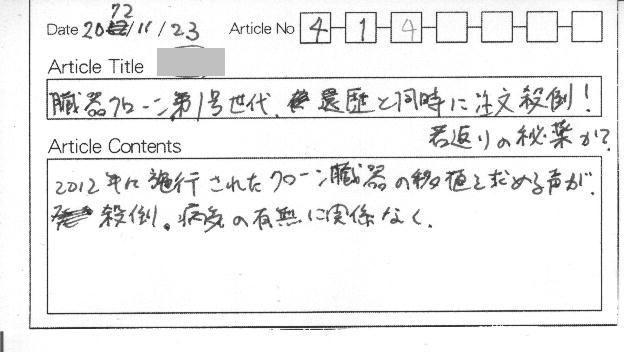 Date 2072/11/23 Article No 4 1 4
Article Title
臓器クローン第1号世代、還暦と同時に注文殺倒!
若返りの秘薬か?
Article Contents
2012年に施行されたクローン臓器の移植を求める声が、
殺倒。病気の有無に関係なく。